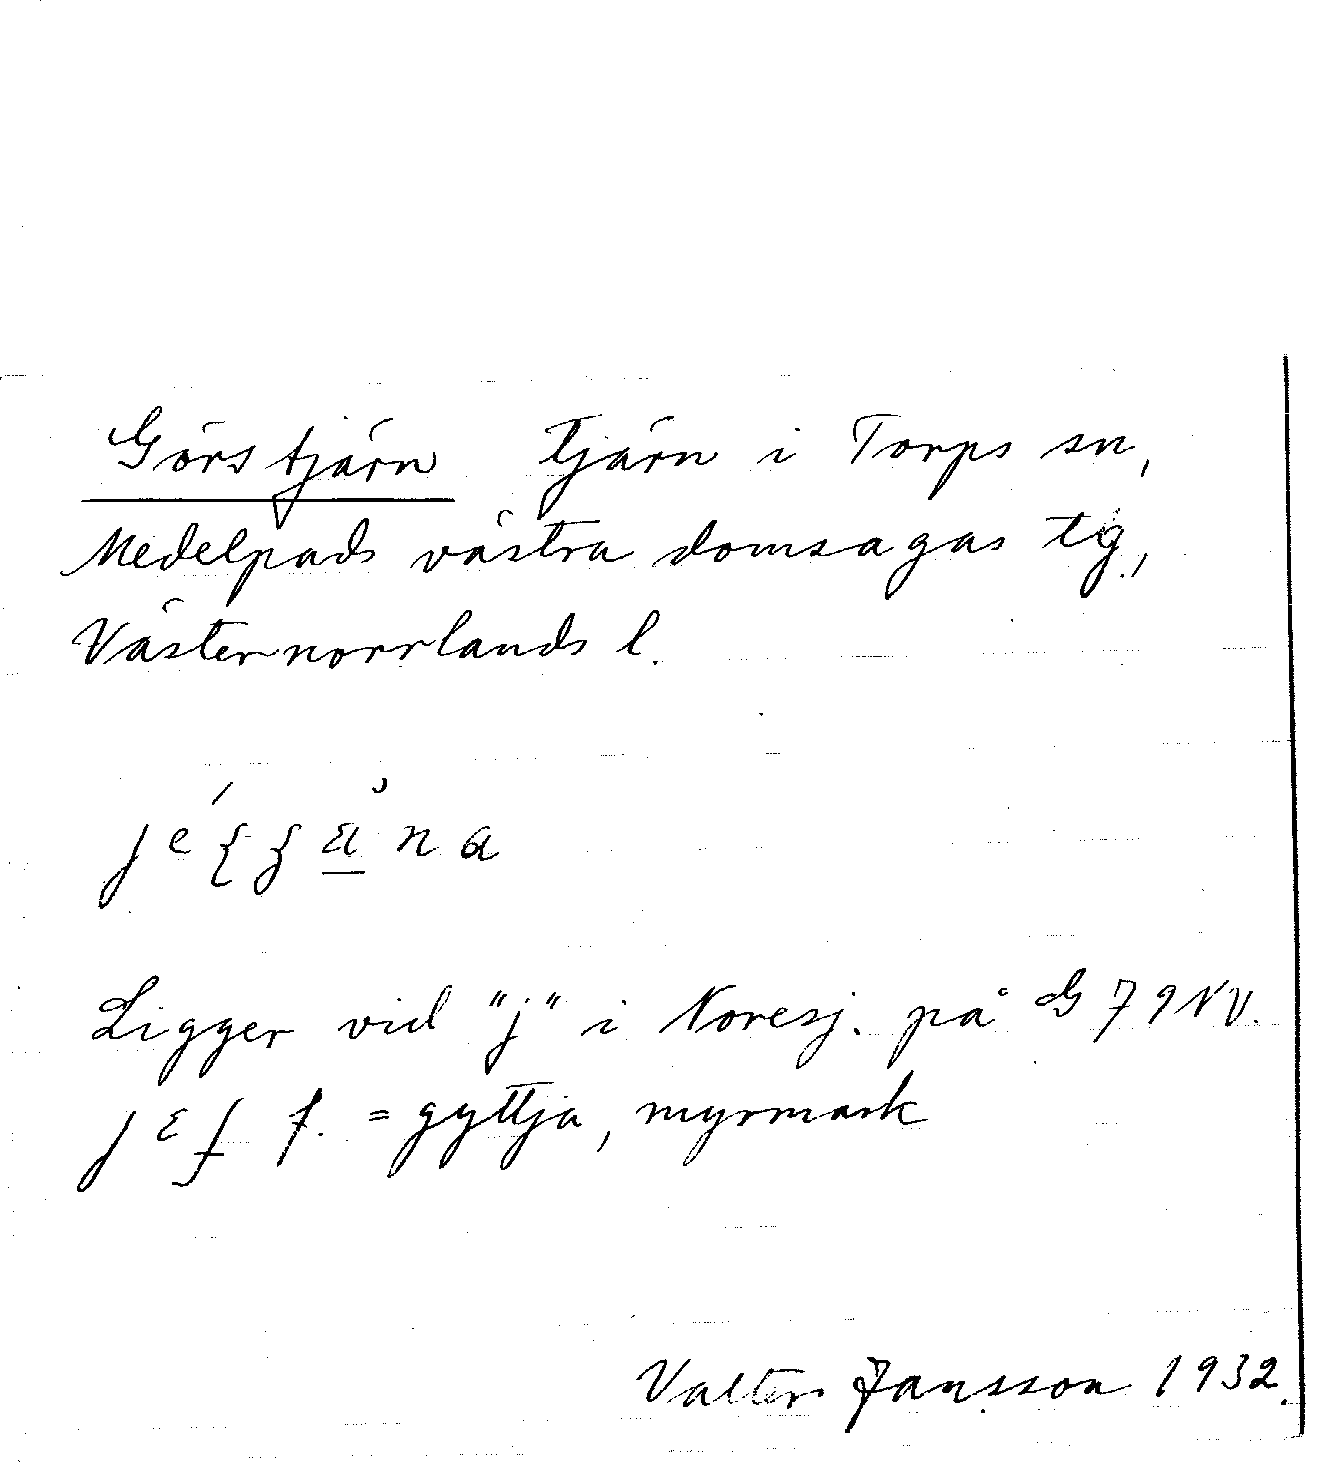 Görstjärn Tjärn i Torps sn,
Medelpads västra domsagas tg.,
Västernorrlands l.
Ligger vid "j" i Noresj. på G 79 NV.
f. = gyttja, myrmark
Valter Jansson 1932.